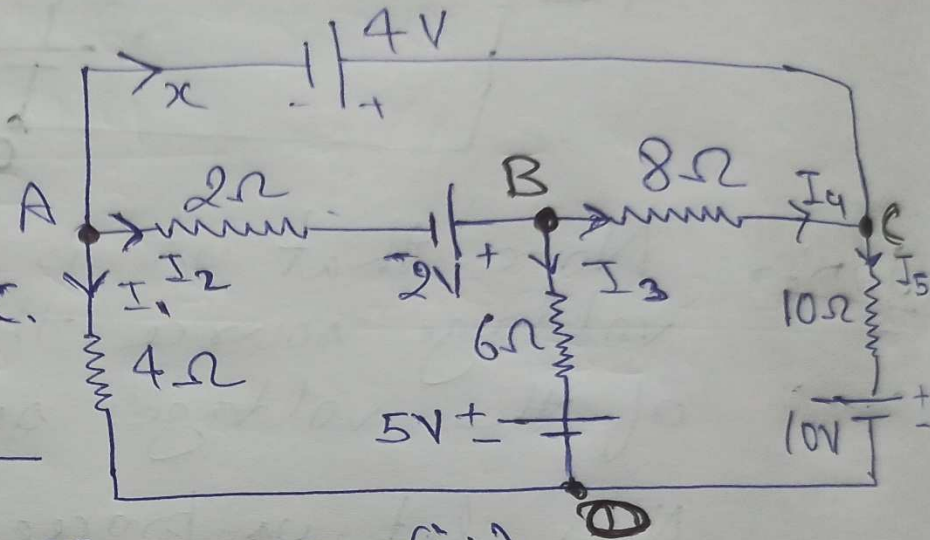 4V
x
- +
A
2Ω
B
8Ω
I4
C
I2
I1
-2V +
I3
I5
4Ω
6Ω
10Ω
5V + -
10V + -